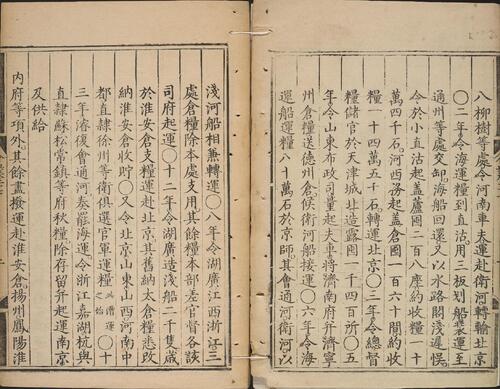 八柳樹等處令河南車夫運赴衛河轉輸北京
〇二年令海運糧到直沽用三板划船裝運至
通州等處交卸海船回還又以水路閣淺遲悞
令於小直沽起蓋蘆囤二百八座約收糧一十
萬四千石河西務起蓋倉囤一百六十間約收
糧一十四萬五千石轉運北京〇三年令總督
糧儲官於天津城北造露囤一千四百所〇五
年令山東布政司量起夫車將濟南府并濟寧
州倉糧送德州倉候衛河船接運〇六年令海
運船運糧八十萬石於京師其會通河衛河以
淺河船相兼轉運〇八年令湖廣江西浙江三
處倉糧除本處支用其餘糧本部差官督各該
司府起運〇十二年令湖廣造淺船二千隻歲
於淮安倉支糧運赴北京其舊納太倉糧悉改
納淮安倉收貯〇又令北京山東山西河南中
都直隸徐州等衛俱選官軍運糧此漕運始〇十
三年濬復會通河奏罷海運令浙江嘉湖杭與
直隸蘇松常鎮等府秋糧除存留并起運南京
及供給
內府等項外其餘盡撥運赴淮安倉揚州鳳陽淮